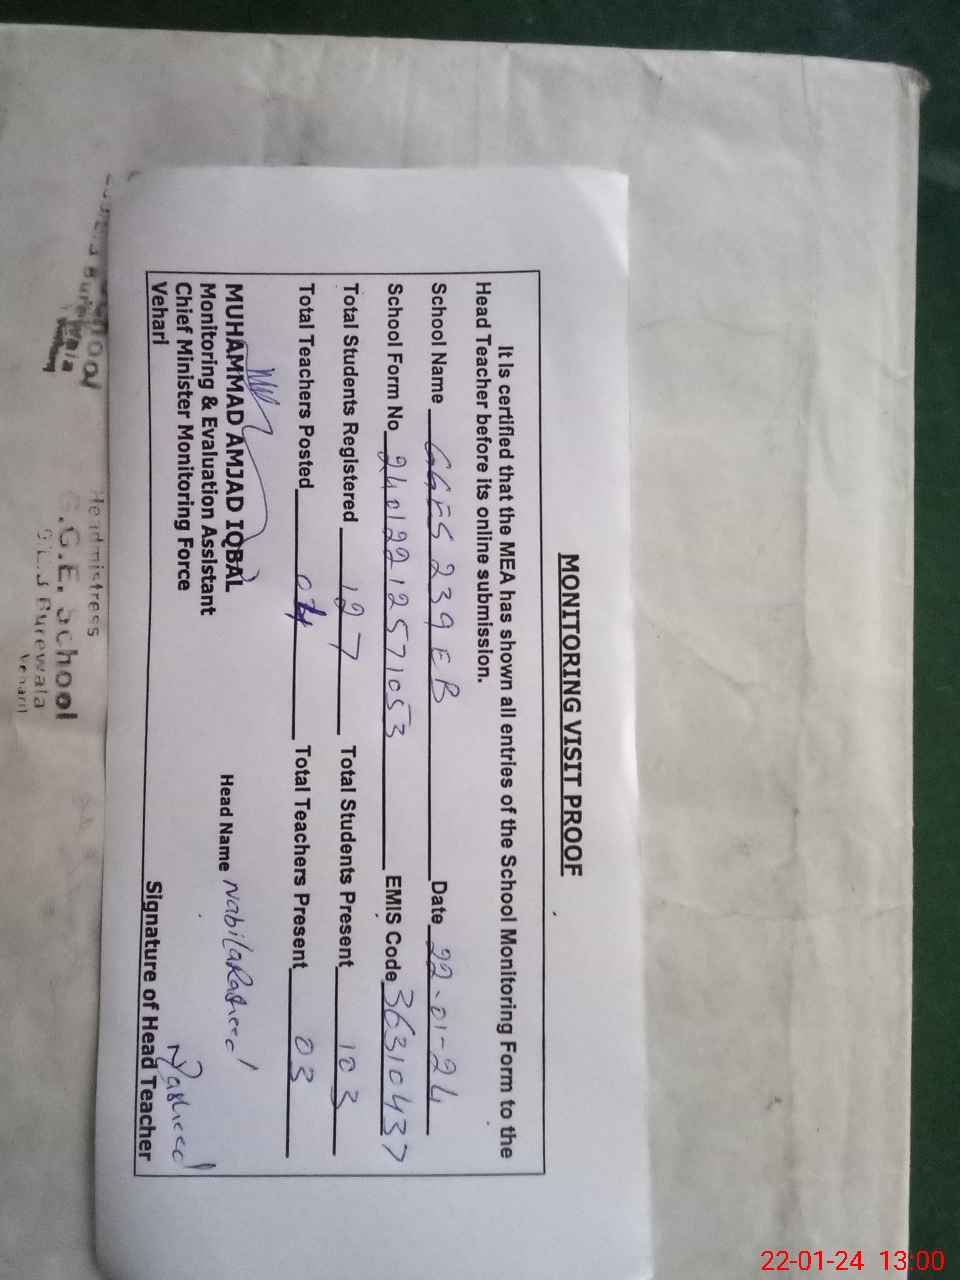 MONITORING VISIT PROOF
It is certified that the MEA has shown all entries of the School Monitoring Form to the
Head Teacher before its online submission.
School Name GGES 239 EB Date 22-01-24
School Form No 24012212571053 EMIS Code 36310437
Total Students Registered 127 Total Students Present 103
Total Teachers Posted 04 Total Teachers Present 03
MUHAMMAD AMJAD IQBAL
Monitoring & Evaluation Assistant
Chief Minister Monitoring Force
Vehari
Head Name Nabila Rasheed
Rasheed
Signature of Head Teacher
Headmistress
G.G.E. School
Burewala
Vehari
22-01-24 13:00